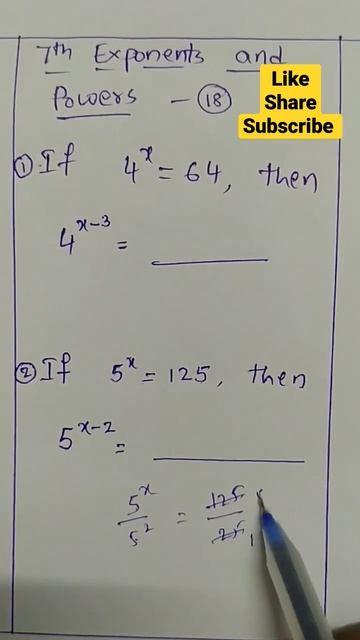 7th Exponents and
Powers - 18
Like
Share
Subscribe
① If 4^x = 64, then
4^(x-3) = ________
② If 5^x = 125, then
5^(x-2) = ________
5^x/5^2 = 125/25 1